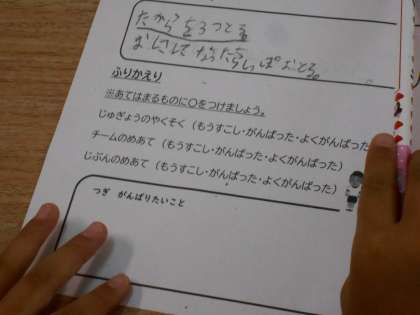 たからをろつとる
おにしてなったらしっぽおとる。
ふりかえり
※あてはまるものに〇をつけましょう。
じゅぎょうのやくそく（もうすこし・がんばった・よくがんばった
チームのめあて（もうすこし・がんばった・よくがんばった）
じぶんのめあて（もうすこし・がんばった・よくがんばった）
つぎ がんばりたいこと